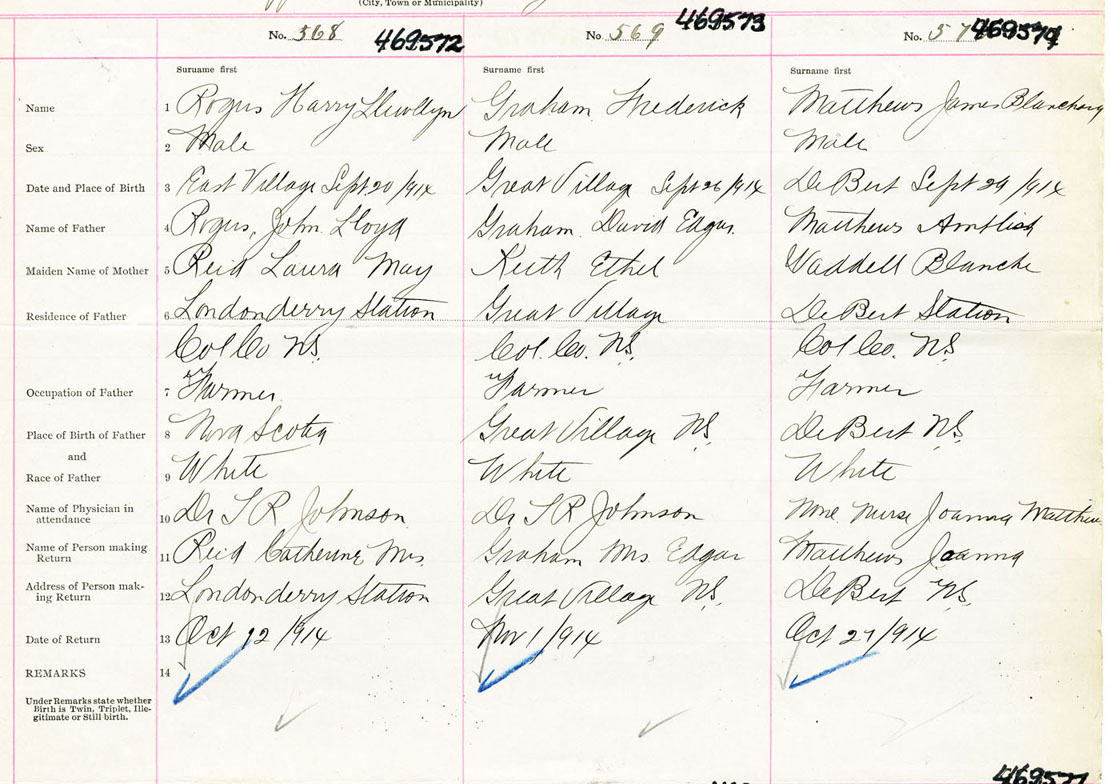 (City, Town or Municipality)
No. 568 469572 No. 569 469573 No. 57 469574
Surname first Surname first Surname first
Name 1 Rogus Harry Llewllyn Graham Frederick Matthews James Blanchard
Sex 2 Male Male Male
Date and Place of Birth 3 East Village Sept 20/914 Great Village Sept 26/914 DeBert Sept 29/914
Name of Father 4 Rogus, John Lloyd Graham David Edgar Matthews
Maiden Name of Mother 5 Reid Laura May Keith Ethel Waddell Blanche
Residence of Father 6 Londonderry Station Great Village DeBert Station
Col Co NS. Col. Co. NS. Col Co. NS.
Occupation of Father 7 Farmer Farmer Farmer
Place of Birth of Father 8 Nova Scotia Great Village NS. DeBert NS.
and
Race of Father 9 White White White
Name of Physician in
attendance 10 Dr T R Johnson Dr T R Johnson None Nurse Joanna Matthews
Name of Person making
Return 11 Reid Catherine Mrs. Graham Mrs. Edgar Matthews Joanna
Address of Person mak-
ing Return 12 Londonderry Station Great Village NS. DeBert NS.
Date of Return 13 Oct 12/914 Nov 1/914 Oct 27/914
REMARKS 14
Under Remarks state whether
Birth is Twin, Triplet, Ille-
gitimate or Still birth.